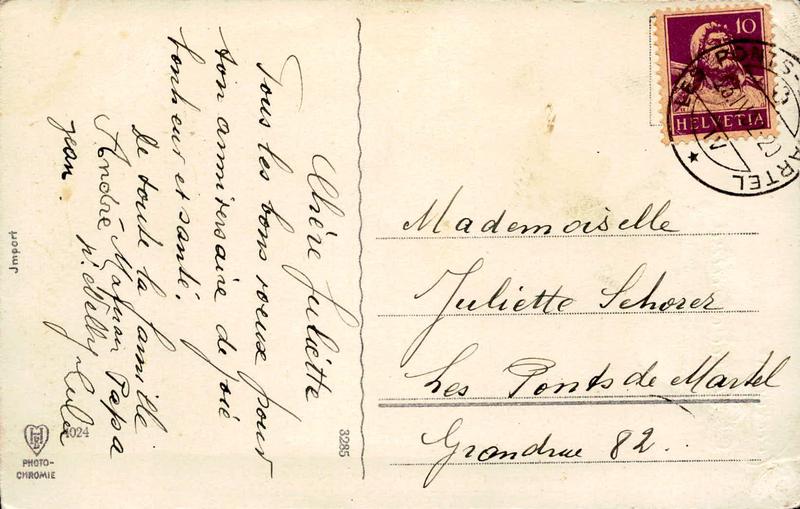 Chère Juliette
Tous les bons voeux pour
ton anniversaire de joie
bonheur et santé.
De toute la famille
André Maman Papa
Nelly Lulu
Jean.
Mademoiselle
Juliette Schorer
Les Ponts de Martel
Grandrue 82.
10
HELVETIA
LES PONTS-DE-MARTEL
Jmport
3285
4024
PHOTO-
CHROMIE